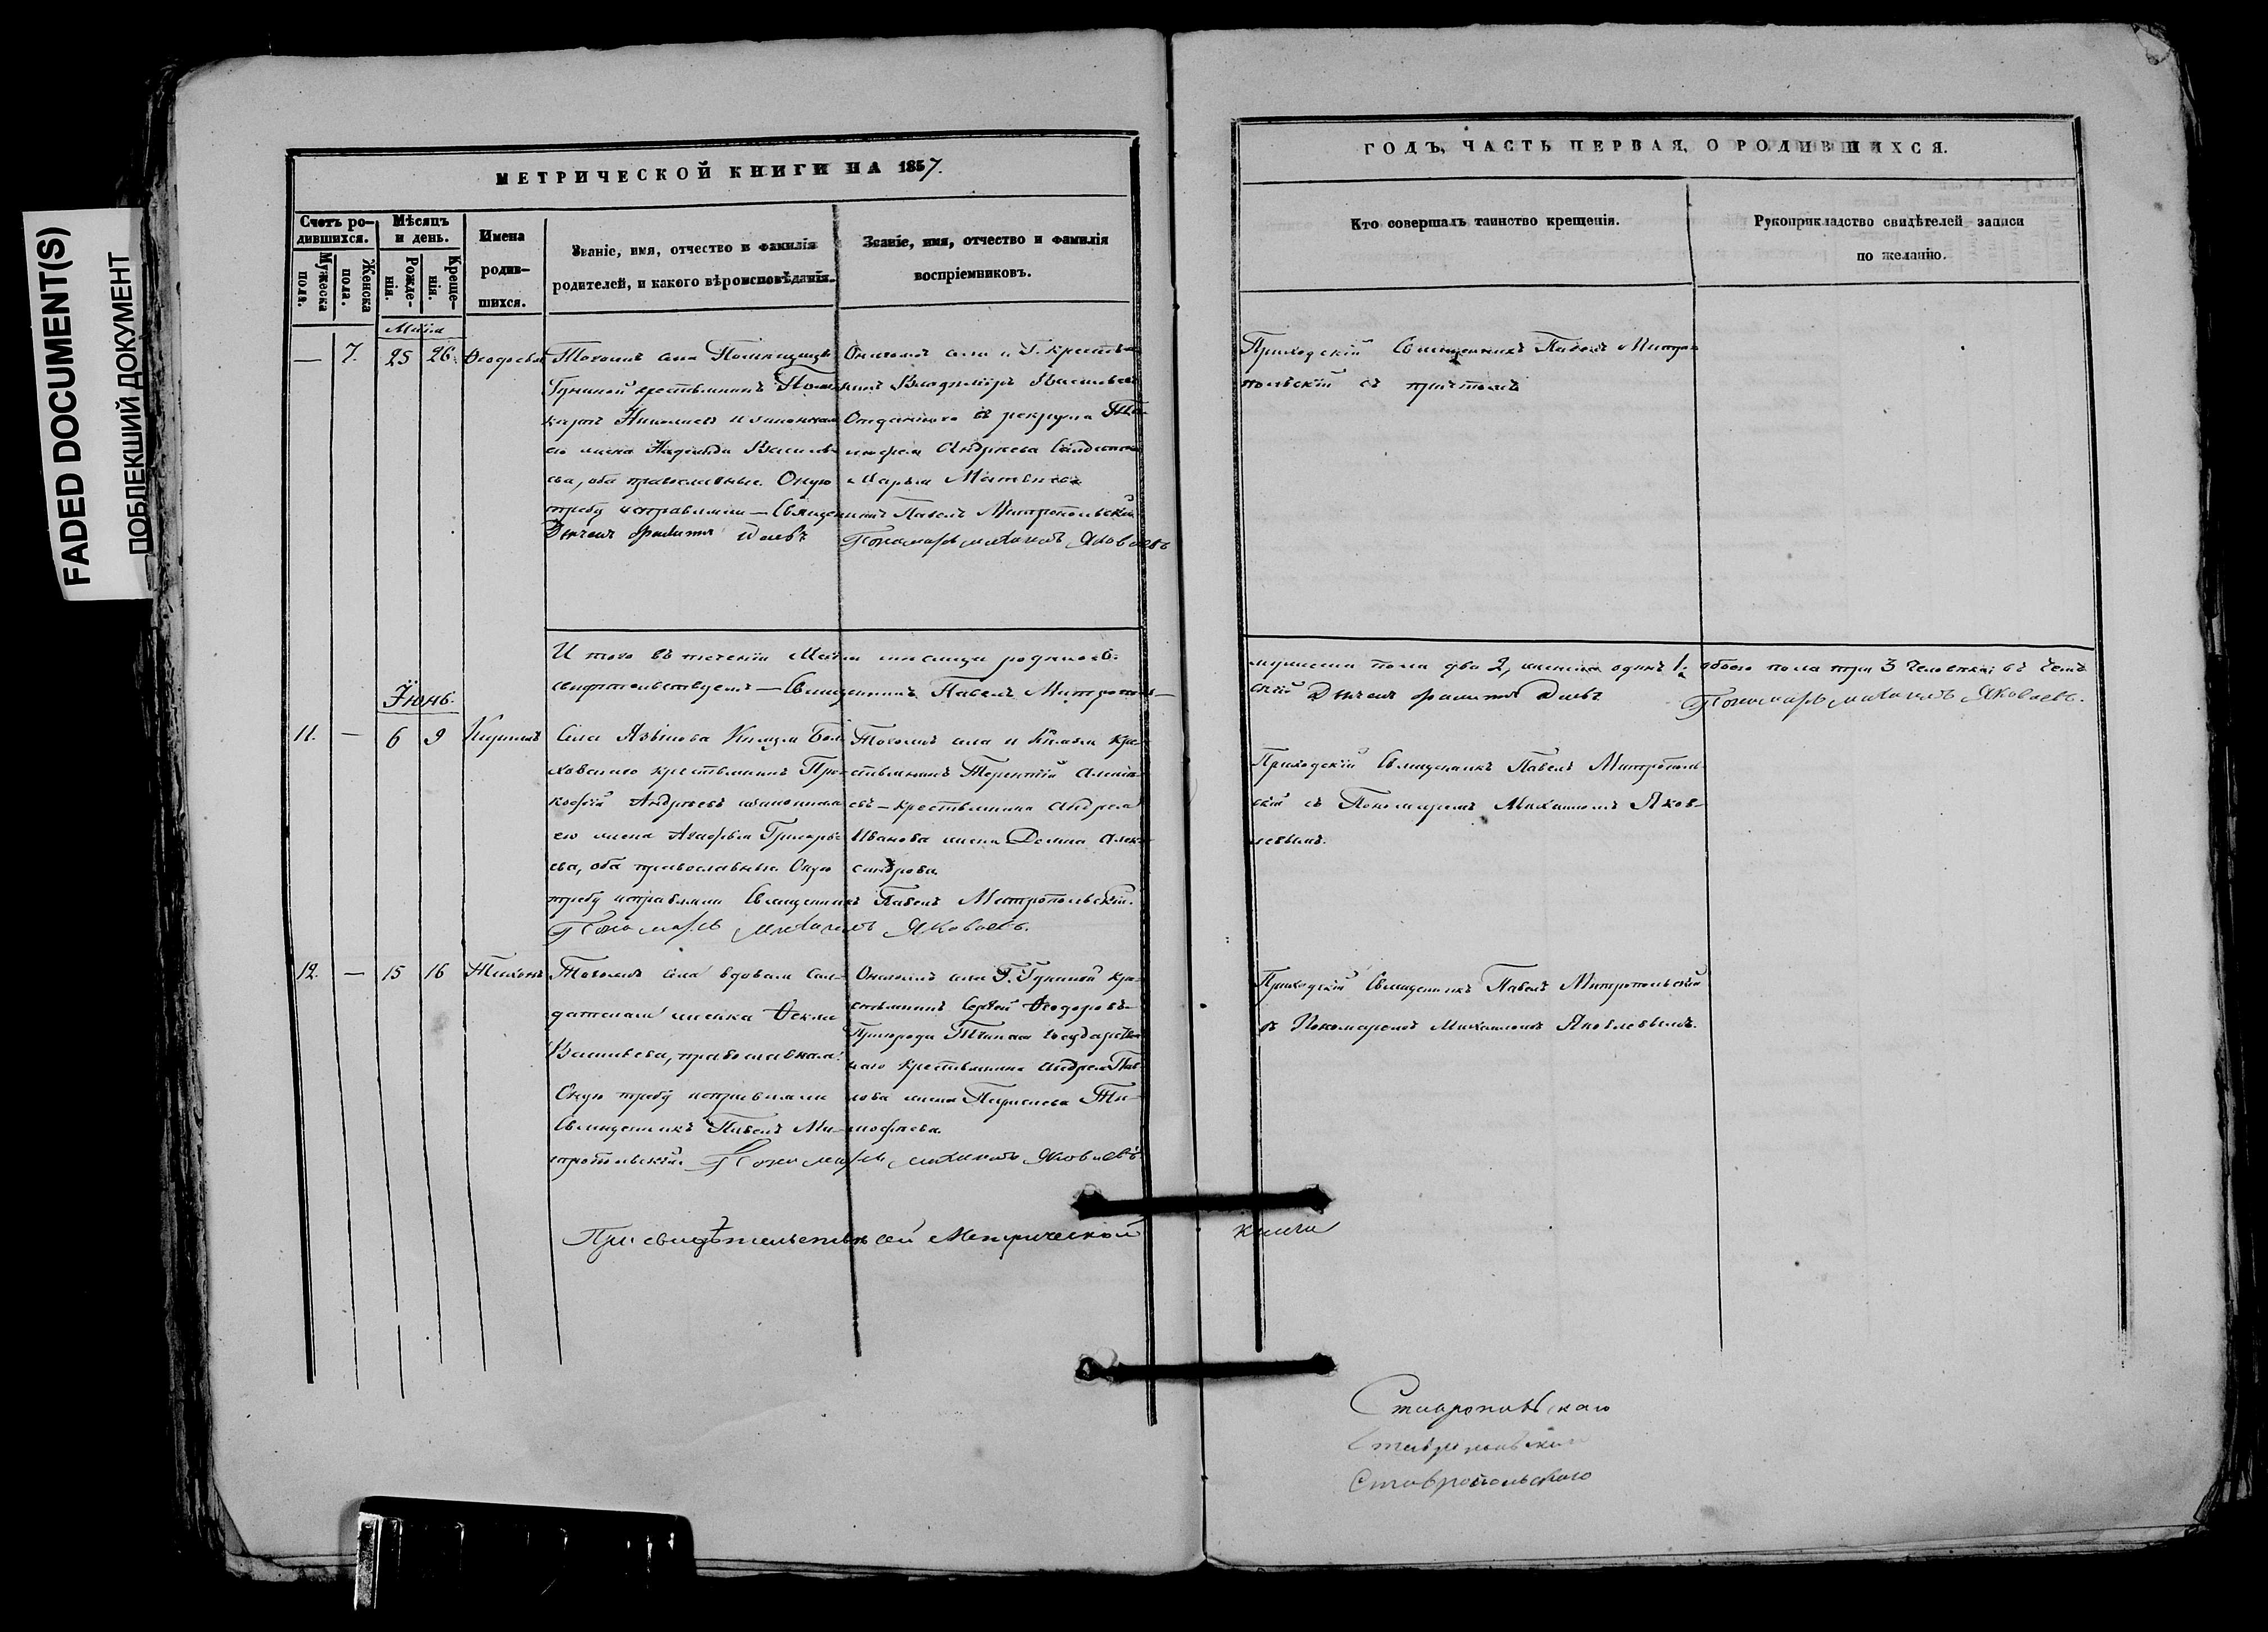 FADED DOCUMENT(S)
ПОБЛЕКШИЙ ДОКУМЕНТ
МЕТРИЧЕСКОЙ КНИГИ НА 1857.
Счетъ ро-
дившихся.
Мужеска
пола.
Женска
пола.
Мѣсяцъ
и день.
Рожде-
нія.
Креще-
нія.
Имена
родив-
шихся.
Званіе, имя, отчество и фамилія
родителей, и какого вѣроисповѣданія.
Званіе, имя, отчество и фамилія
воспріемниковъ.
Маія
— 7. 25 26.
Тогожъ села Помѣщицы
Гуниной крестьянинъ
Николаевъ и законная
его жена Надежда Василь-
ева, оба православные. Оную
требу исправляли — Священникъ Павелъ Митропольскій
Дьячокъ
Онагожъ села и Г. кресть-
янинъ Владиміръ Васильевъ
Отданнаго въ рекруты Ти-
мофея Андреева
Марья Матвеева
Пономарь Михаилъ Яковлевъ
И того въ теченіи Маія месяца родилось:
свидетельствуемъ — Священникъ Павелъ Митрополь-
Іюнь.
11. — 6 9 Кириллъ
Села Языкова Князя
крестьянинъ Про-
кофій Андреевъ и законная
его жена Агафья Григорье-
ва, оба православные. Оную
требу исправляли Священникъ Павелъ Митропольскій.
Пономарь Михаилъ Яковлевъ.
Тогожъ села и Князя кре-
стьянинъ Терентій Алексѣ-
евъ — крестьянина Андрея
Иванова жена Домна Алек-
сандрова.
12. — 15 16 Тихонъ
Тогожъ села вдовая сол-
датская женка Ѳекла
Васильева, православная.
Оную требу исправляли
Священникъ Павелъ Ми-
тропольскій. Пономарь Михаилъ Яковлевъ.
Онагожъ села Г. Гуниной кре-
стьянинъ Сергѣй Ѳеодоровъ
Пригорода государствен-
наго крестьянина Андрея Пав-
лова жена Ти-
мофеева.
При свидѣтельствѣ сей Метрической книги
ГОДЪ, ЧАСТЬ ПЕРВАЯ, О РОДИВШИХСЯ.
Кто совершалъ таинство крещенія.
Рукоприкладство свидѣтелей записи
по желанію.
Приходскій Священникъ Павелъ Митро-
польскій съ причтомъ
мужеска пола два 2, женска одинъ 1; обоего пола три 3 человека; въ чемъ
скій Дьячокъ
Пономарь Михаилъ Яковлевъ.
Приходскій Священникъ Павелъ Митрополь-
скій съ Пономаремъ Михаиломъ Яков-
левымъ.
Приходскій Священникъ Павелъ Митропольскій
съ Пономаремъ Михаиломъ Яковлевымъ.
Ставропольскаго
Ставропольскаго
Ставропольскаго